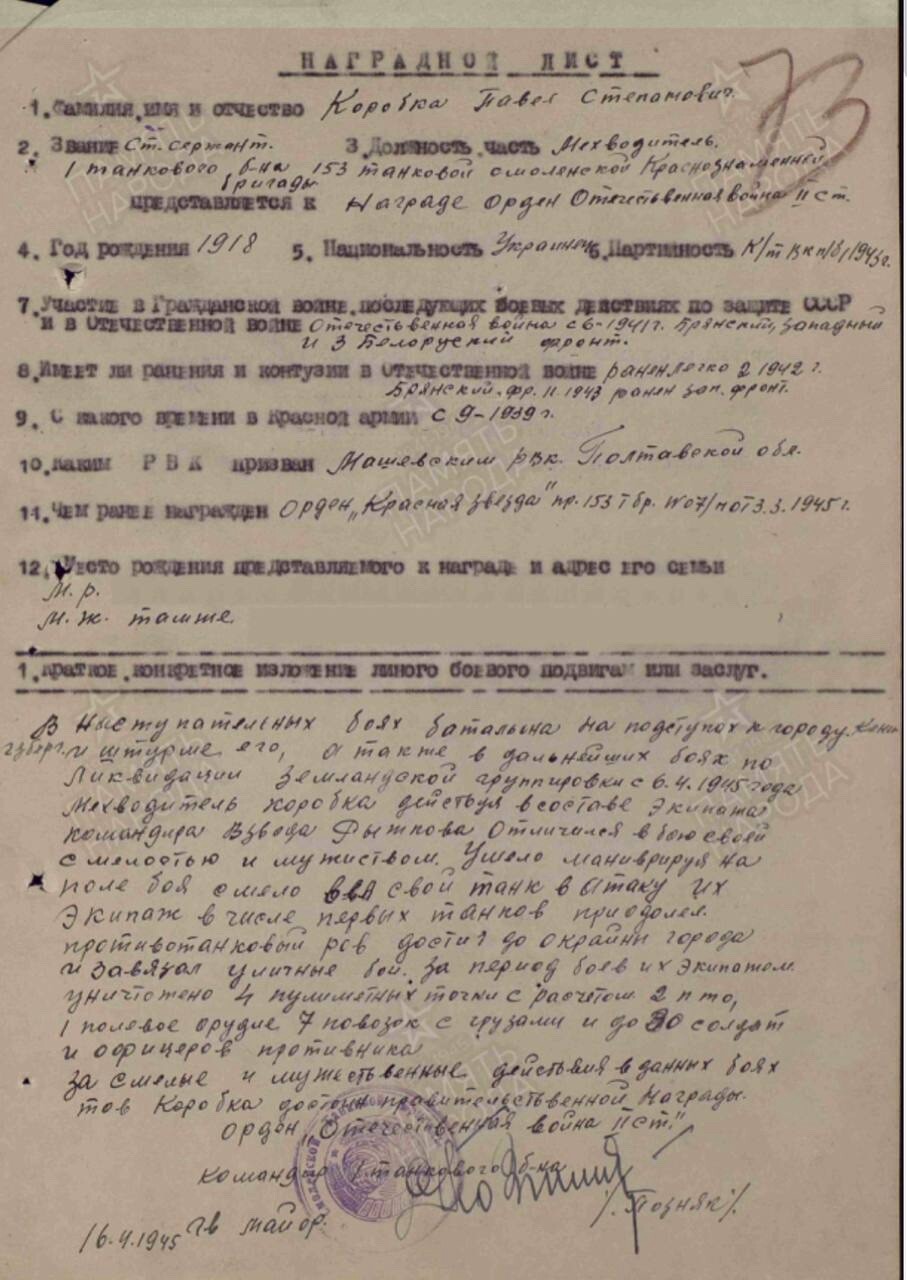 НАГРАДНОЙ ЛИСТ
73
1. Фамилия, имя и отчество Коробка Павел Степанович.
2. Звание Ст. сержант. 3. Должность, часть Мехводитель.
1 танкового б-на 153 танковой смоленской Краснознаменной
бригады
ПРЕДСТАВЛЯЕТСЯ К Награде орден Отечественная война II ст.
4. Год рождения 1918 5. Национальность Украинец 6. Партийность К/т ВКП/б/ 1943г.
7. Участие в Гражданской войне, последующих боевых действиях по защите СССР
и в Отечественной войне Отечественная война с 6-1941г. Брянский, западный
и 3 Белоруский фронт.
8. Имеет ли ранения и контузии в Отечественной войне ранен легко 2 1942 г.
Брянский фр. 11 1943 ранен зап. фронт.
9. С какого времени в Красной армии с 9-1939 г.
10. Каким РВК призван Машевским рвк. Полтавской обл.
11. Чем ранее награжден орден "Красная звезда" пр. 153 Тбр. №07/н от 3.3.1945г.
12. Место рождения представляемого к награде и адрес его семьи
м. р.
м. ж. тамже.
1. Краткое, конкретное изложение линого боевого подвигам или заслуг.
В Ныступательных боях батальна на подступах к городу Кени
гзберг. и штурме его, а также в дальнейших боях по
Ликвидации Земландской группировки с 6.4.1945 года
Мехводитель коробка действуя в составе Экипажа
командира Взвода Рыжкова Отличился в бою своей
смелостью и мужиством. Умело маниврируя на
поле боя смело ввл свой танк в атаку их
Экипаж в числе первых танков приодолел
противотанковый ров достиг до окрайны города
и завязал уличные бои. За период боев их Экипажем
уничтожено 4 пулиметных точки с расчетом 2 п то,
1 полевое орудие 7 повозок с грузами и до 30 солдат
и офицеров противника
За смелые и мужественные действия в данных боях
тов Коробка достоин правительственной Награды.
орден "Отечественная война II ст."
командир 1 танкового б-на
Гв майор. /. Позняк/.
16.4.1945
ПАМЯТЬ
НАРОДА